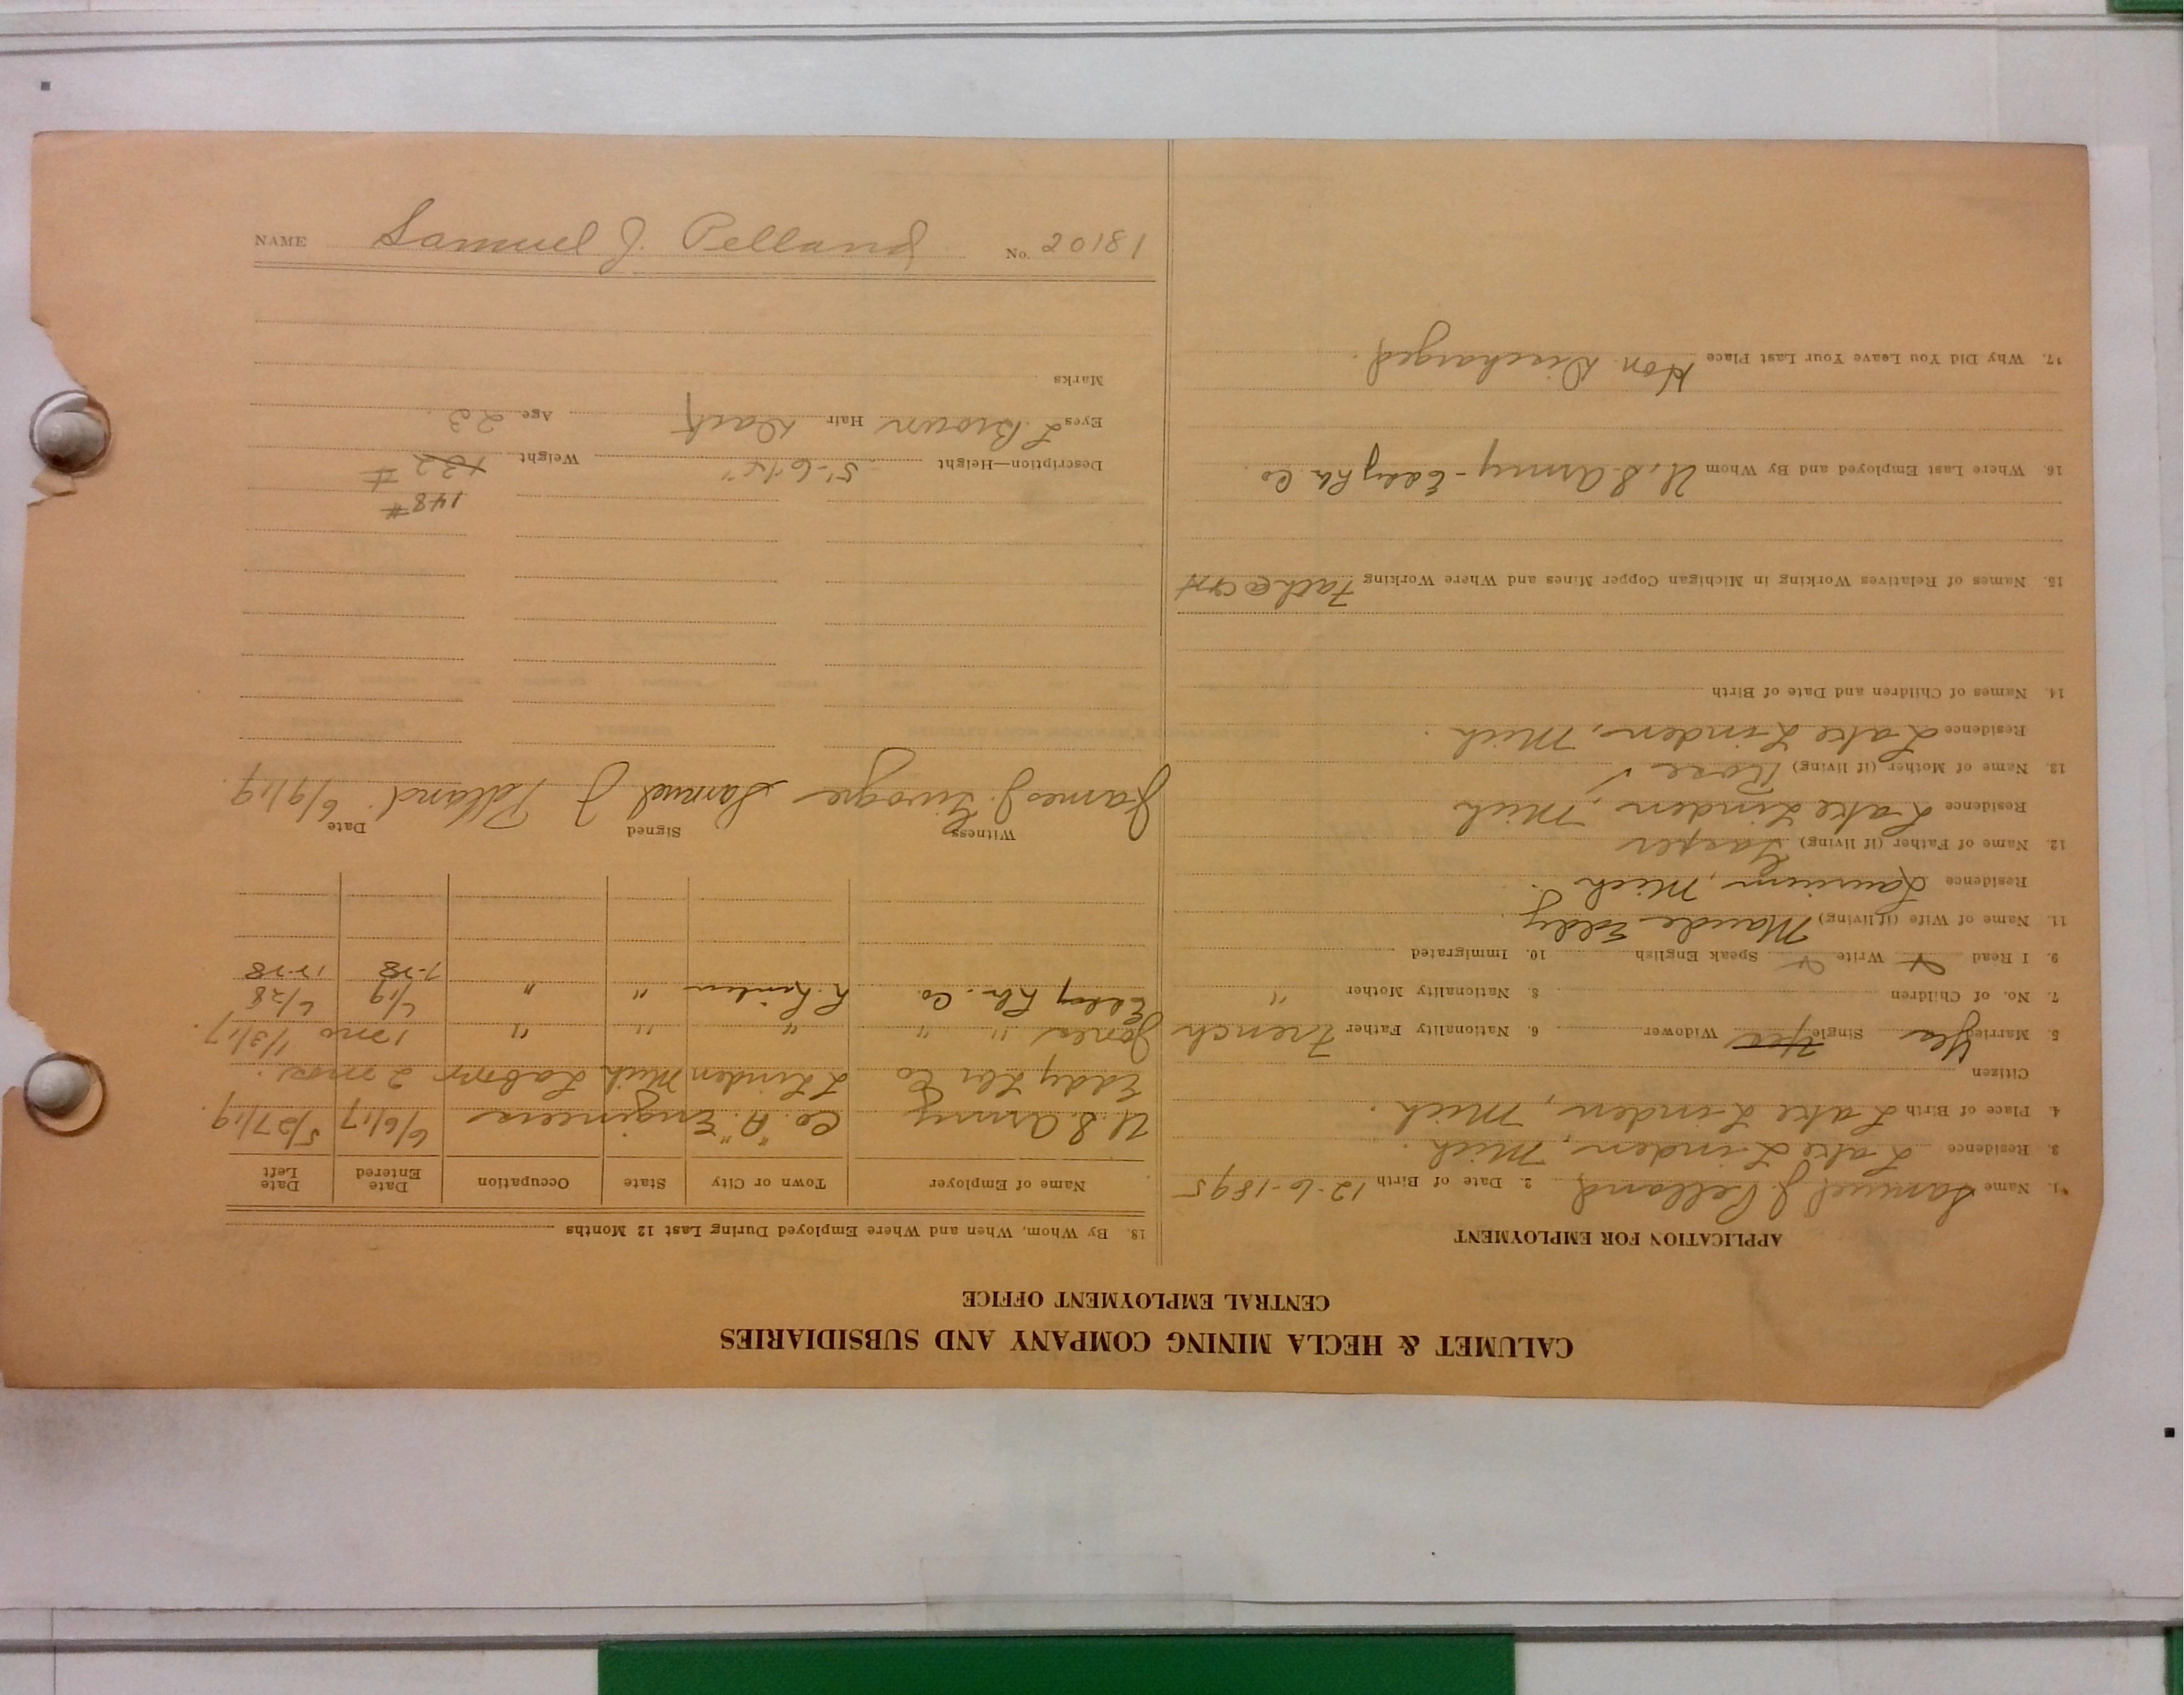 CALUMET & HECLA MINING COMPANY AND SUBSIDIARIES
CENTRAL EMPLOYMENT OFFICE
APPLICATION FOR EMPLOYMENT
1. Name Samuel J. Pelland 2. Date of Birth 12-6-1895
3. Residence Lake Linden, Mich.
4. Place of Birth Lake Linden, Mich.
Citizen
5. Married Yes Single Yes Widower 6. Nationality Father French
7. No. of Children 8. Nationality Mother "
9. I Read Write Speak English 10. Immigrated
11. Name of Wife (if living) Maude Eddy
Residence Laurium, Mich.
12. Name of Father (if living)
Residence Lake Linden, Mich
13. Name of Mother (if living) Rose ✓
Residence Lake Linden, Mich.
14. Names of Children and Date of Birth
15. Names of Relatives Working in Michigan Copper Mines and Where Working Fath @ C&H
16. Where Last Employed and By Whom U.S. Army - Eddy Co.
17. Why Did You Leave Your Last Place Hon. Discharged.
18. By Whom, When and Where Employed During Last 12 Months
Name of Employer Town or City State Occupation Date Entered Date Left
U.S. Army Co. "A" Engineers 6/6/17 5/27/19.
Eddy Co L Linden Mich Labor 2 mos.
Jones " " " " " 1/3/17.
Eddy Co. L. Linden " " 4/19 4/28
Witness Signed Date
James J. Samuel J Pelland. 6/9/19.
148#
Description—Height 5'-6½" Weight 132 #
Eyes L. Brown Hair Dark Age 23.
Marks
NAME Samuel J. Pelland No. 20181